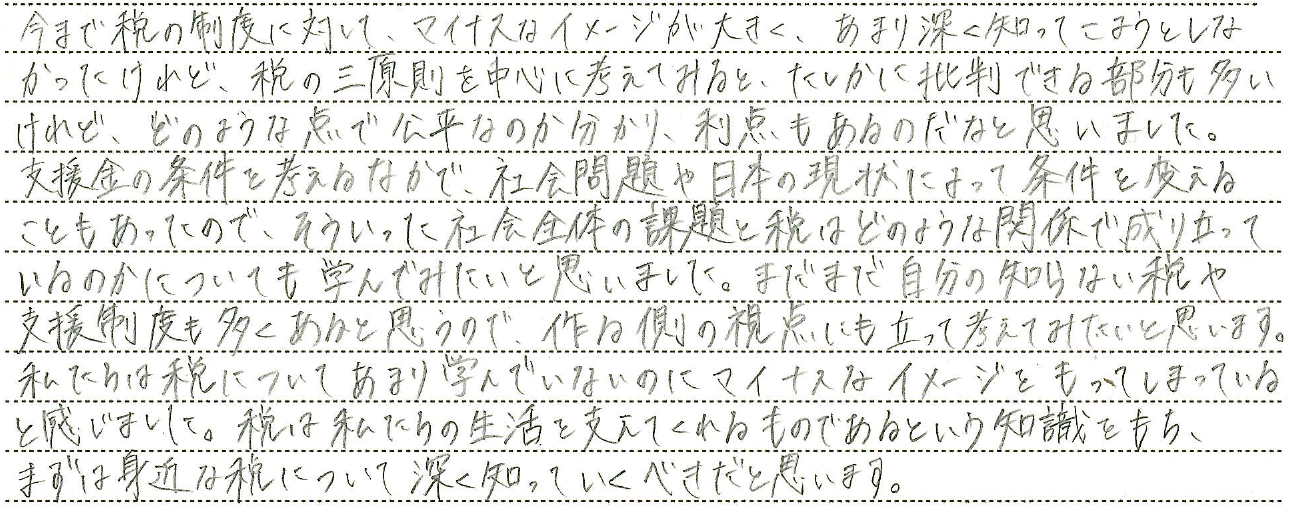 今まで税の制度に対して、マイナスなイメージが大きく、あまり深く知ってこようとしな
かったけれど、税の三原則を中心に考えてみると、たしかに批判できる部分も多い
けれど、どのような点で公平なのか分かり、利点もあるのだなと思いました。
支援金の条件を考えるなかで、社会問題や日本の現状によって条件を変える
こともあったので、そういった社会全体の課題と税はどのような関係で成り立って
いるのかについても学んでみたいと思いました。まだまだ自分の知らない税や
支援制度も多くあると思うので、作る側の視点にも立って考えてみたいと思います。
私たちは税についてあまり学んでいないのにマイナスなイメージをもってしまっている
と感じました。税は私たちの生活を支えてくれるものであるという知識をもち、
まずは身近な税について深く知っていくべきだと思います。